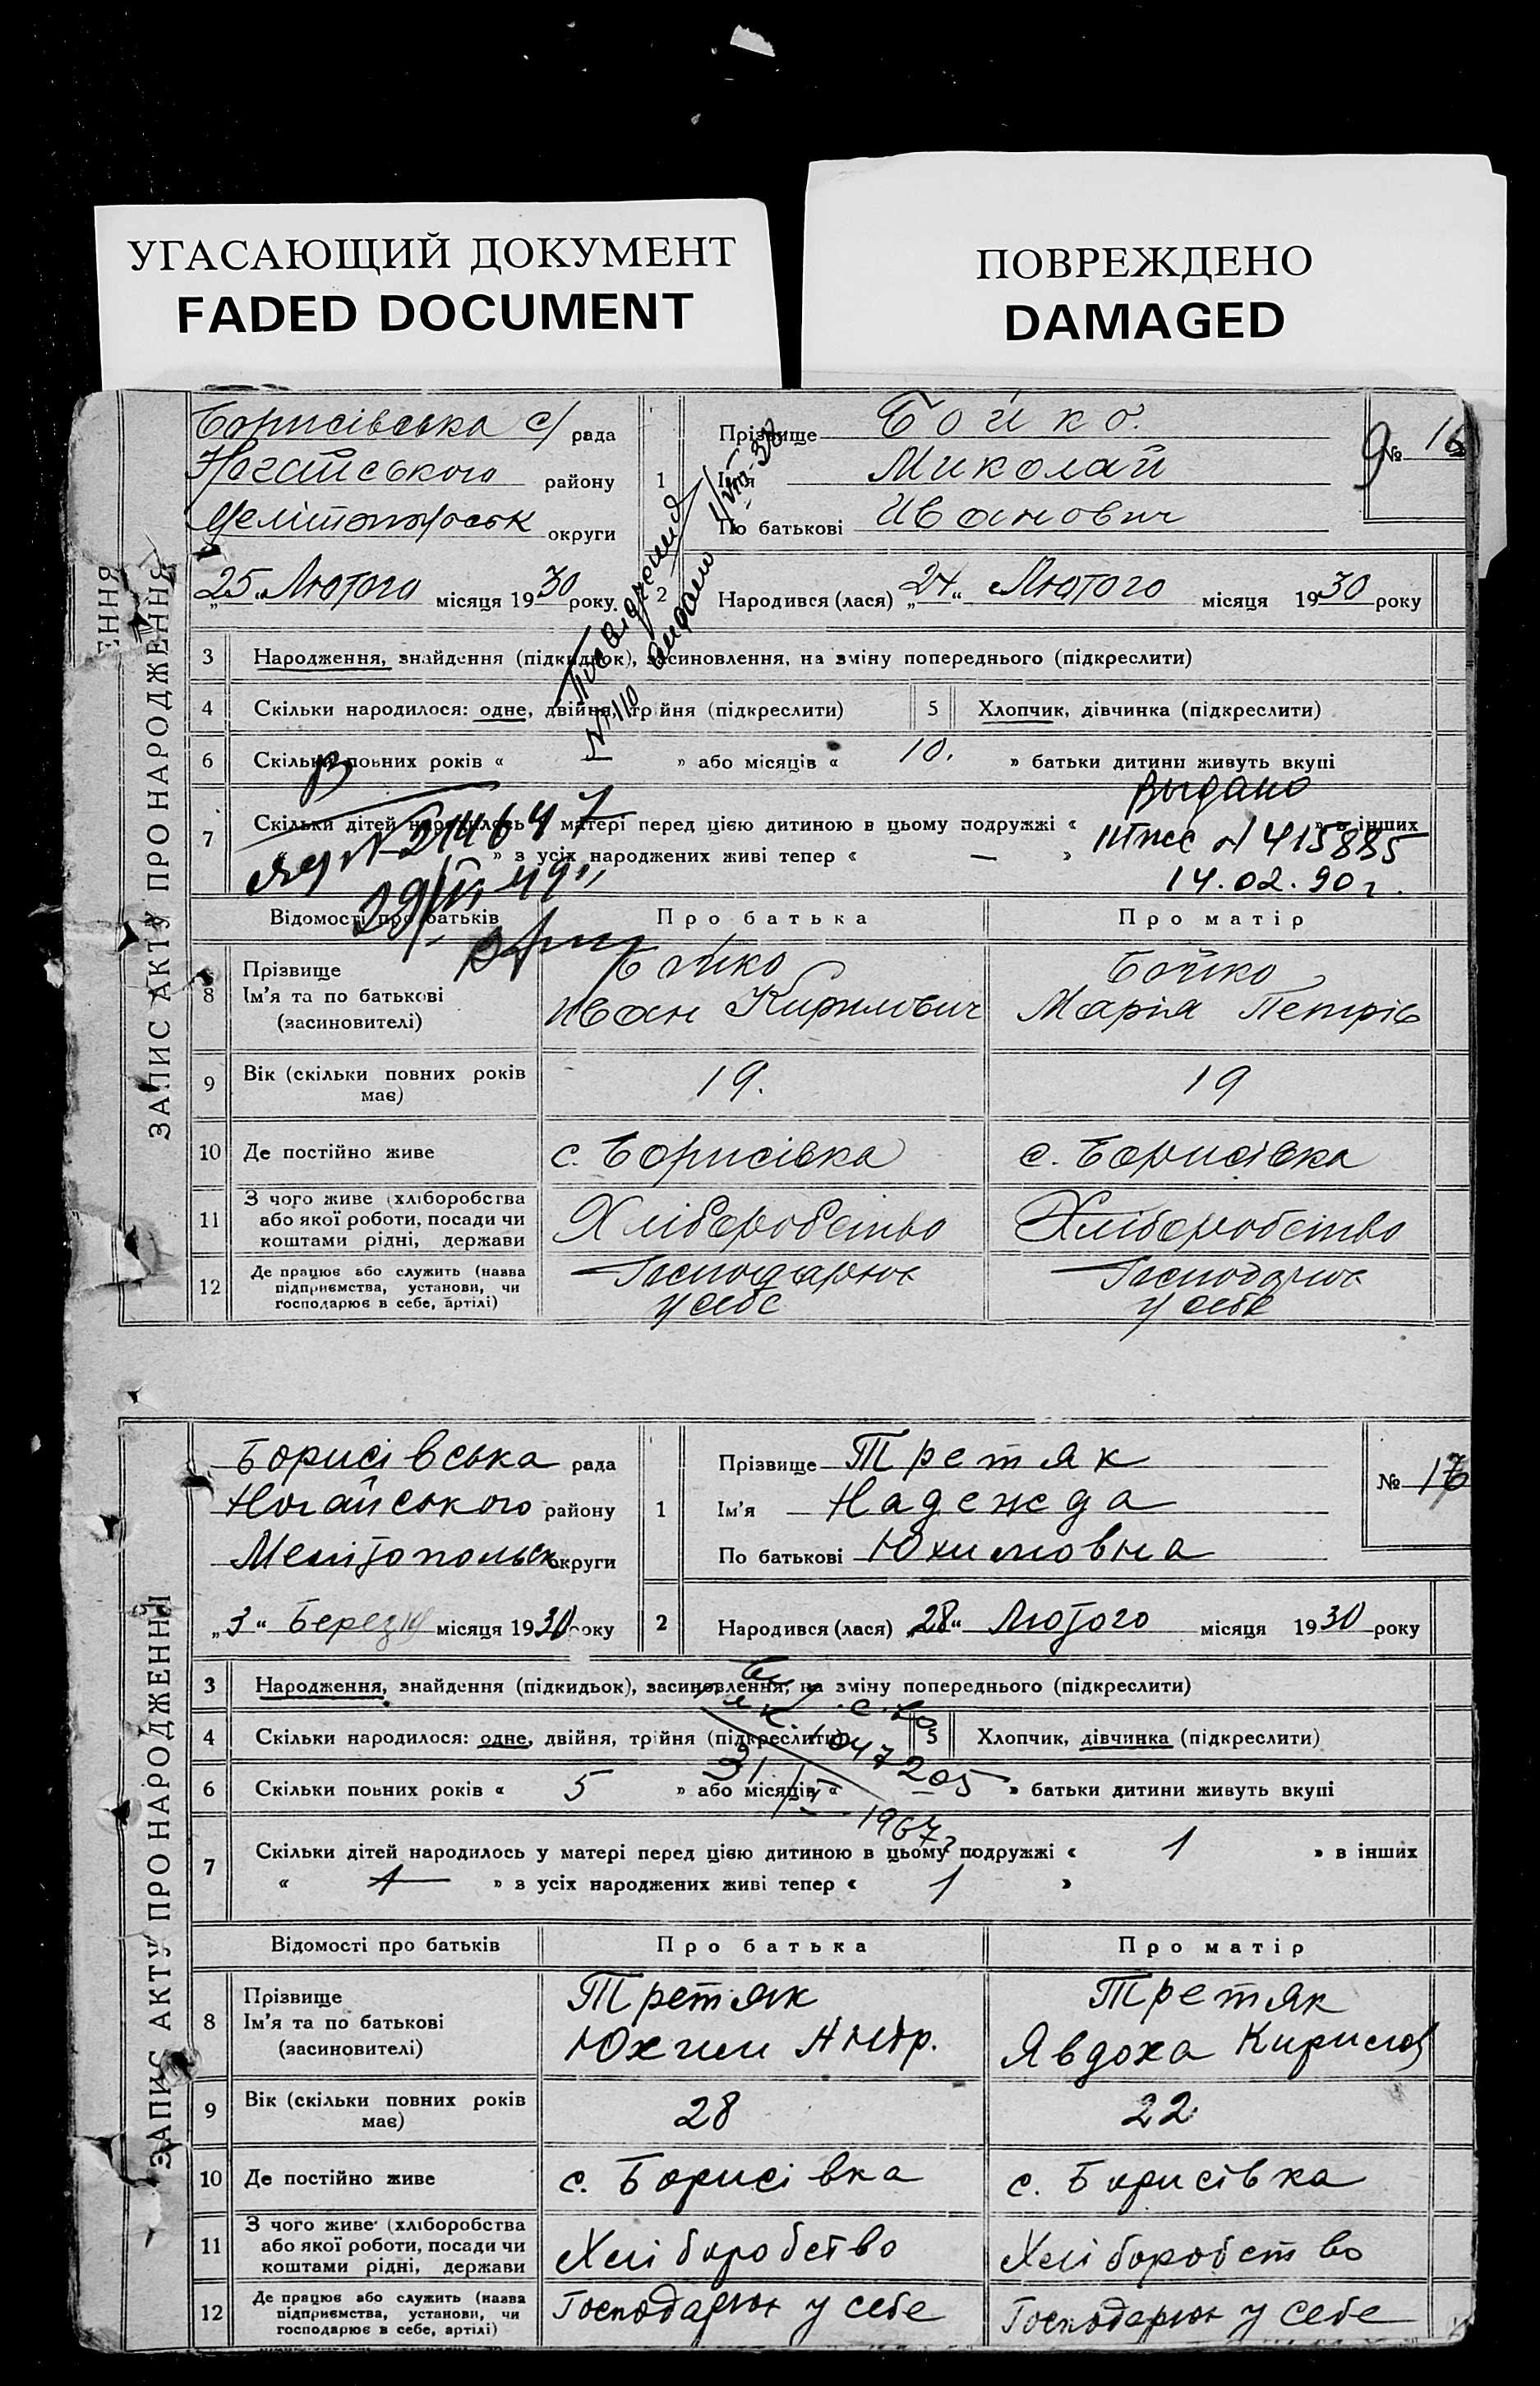 УГАСАЮЩИЙ ДОКУМЕНТ
FADED DOCUMENT
ПОВРЕЖДЕНО
DAMAGED
ЗАПИС АКТУ ПРО НАРОДЖЕННЯ
Борисівська с/ рада
Ногайського району
округи
„25“ Лютого місяця 1930 року
1 Прізвище Бойко.
Ім'я Миколай
По батькові Иванович
№ 16
9
2 Народився (лася) „24“ Лютого місяця 1930 року
Посвідчення
№ 110 видано
3 Народження, знайдення (підкидьок), засиновлення, на зміну попереднього (підкреслити)
4 Скільки народилося: одне, двійня, трійня (підкреслити) 5 Хлопчик, дівчинка (підкреслити)
6 Скільки повних років « — » або місяців « 10. » батьки дитини живуть вкупі
7 Скільки дітей народилось у матері перед цією дитиною в цьому подружжі « » в інших
» з усіх народжених живі тепер « — »
выдано
№ 415885
14.02.90 г.
Відомості про батьків Про батька Про матір
8 Прізвище Ім'я та по батькові (засиновителі)
Бойко
Иван Кирилович
Бойко
Марія Петрів
9 Вік (скільки повних років має) 19. 19
10 Де постійно живе с. Борисівка с. Борисівка
11 З чого живе (хліборобства або якої роботи, посади чи коштами рідні, держави Хліборобство Хліборобство
12 Де працює або служить (назва підприємства, установи, чи господарює в себе, артілі) Господарює у себе Господарює у себе
ЗАПИС АКТУ ПРО НАРОДЖЕННЯ
Борисівська рада
Ногайського району
Мелітопольск округи
„3“ Березня місяця 1930 року
1 Прізвище Третяк
Ім'я Надежда
По батькові Юхимовна
№ 17
2 Народився (лася) „28“ Лютого місяця 1930 року
3 Народження, знайдення (підкидьок), засиновлення, на зміну попереднього (підкреслити)
4 Скільки народилося: одне, двійня, трійня (підкреслити) 5 Хлопчик, дівчинка (підкреслити)
6 Скільки повних років « 5 » або місяців « » батьки дитини живуть вкупі
7 Скільки дітей народилось у матері перед цією дитиною в цьому подружжі « 1 » в інших
« » з усіх народжених живі тепер « 1 »
Відомості про батьків Про батька Про матір
8 Прізвище Ім'я та по батькові (засиновителі)
Третяк
Юхим Андр.
Третяк
Явдоха Кирилов
9 Вік (скільки повних років має) 28 22
10 Де постійно живе с. Борисівка с. Борисівка
11 З чого живе (хліборобства або якої роботи, посади чи коштами рідні, держави Хліборобство Хліборобство
12 Де працює або служить (назва підприємства, установи, чи господарює в себе, артілі) Господарюк у себе Господарюк у себе